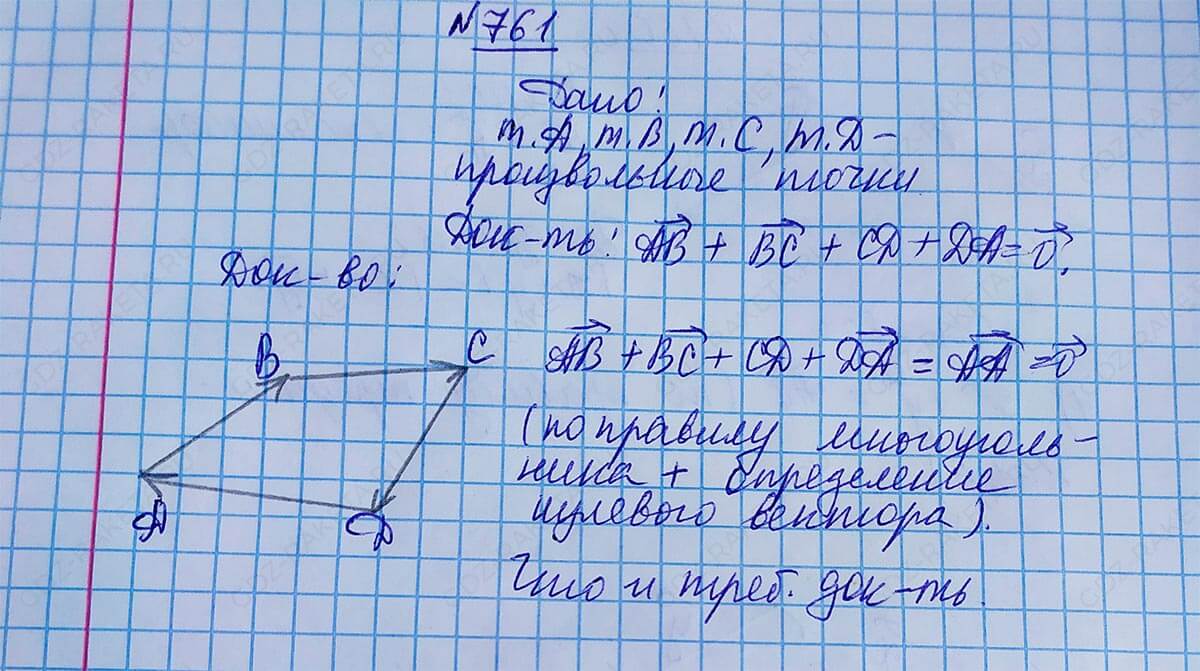 №761
Дано:
т.А, т.В, т.С, т.Д –
произвольные точки
Док-ть: АВ + ВС + СД + ДА = 0.
Док-во:
В
С
АВ + ВС + СД + ДА = АА = 0
(по правилу многоуголь-
ника + определение
нулевого вектора).
А
Д
Что и треб. док-ть.